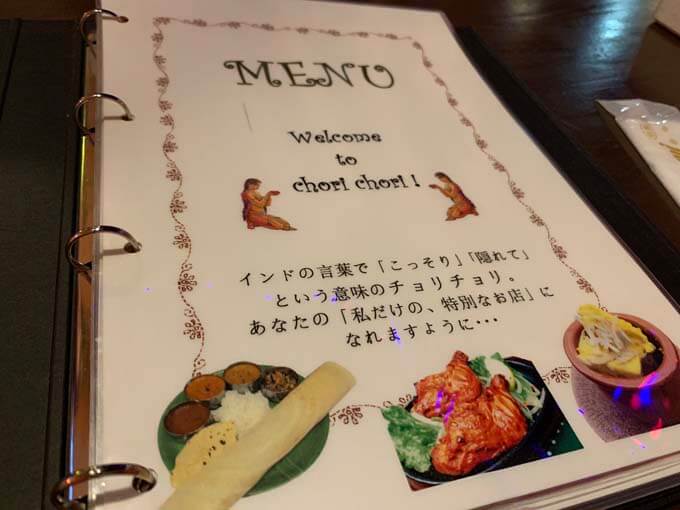 MENU
Welcome
to
chori chori !
インドの言葉で「こっそり」「隠れて」
という意味のチョリチョリ。
あなたの「私だけの、特別なお店」に
なれますように・・・